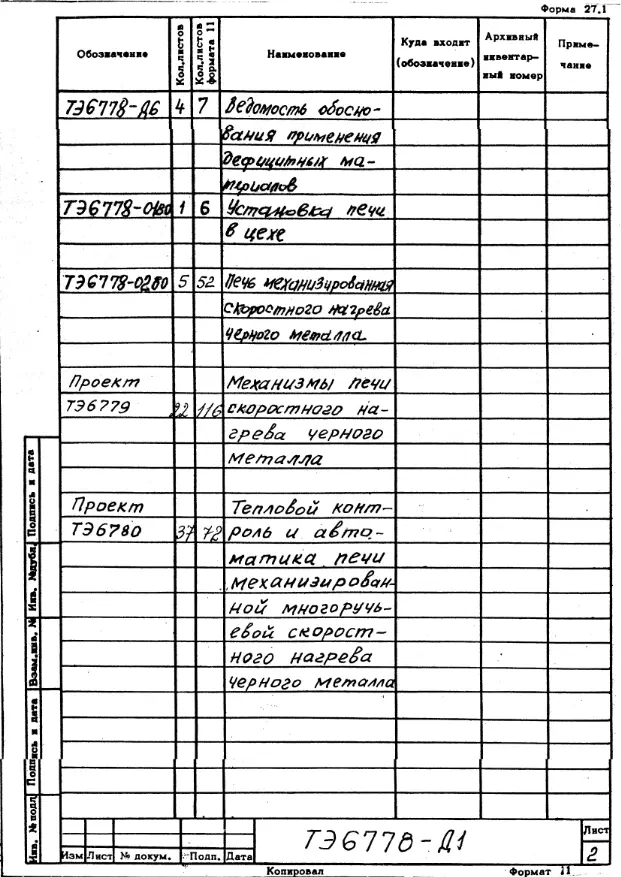 Форма 27.1
Обозначение Кол.листов Кол.листов формата 11 Наименование Куда входит (обозначение) Архивный инвентарный номер Примечание
ТЭ6778-Д6 4 7 Ведомость обосно-
вания применения
дефицитных ма-
териалов
ТЭ6778-0180 1 6 Установка печи
в цехе
ТЭ6778-0280 5 52 Печь механизированная
скоростного нагрева
черного металла
Проект Механизмы печи
ТЭ6779 22 116 скоростного на-
грева черного
металла
Проект Тепловой конт-
ТЭ6780 37 72 роль и авто-
матика печи
механизирован-
ной многоручь-
евой скорост-
ного нагрева
черного металла
Инв. № подл. Подпись и дата Взам.инв. № Инв. №дубл. Подпись и дата
ТЭ6778-Д1
Лист
2
Изм Лист № докум. Подп. Дата
Копировал Формат 11